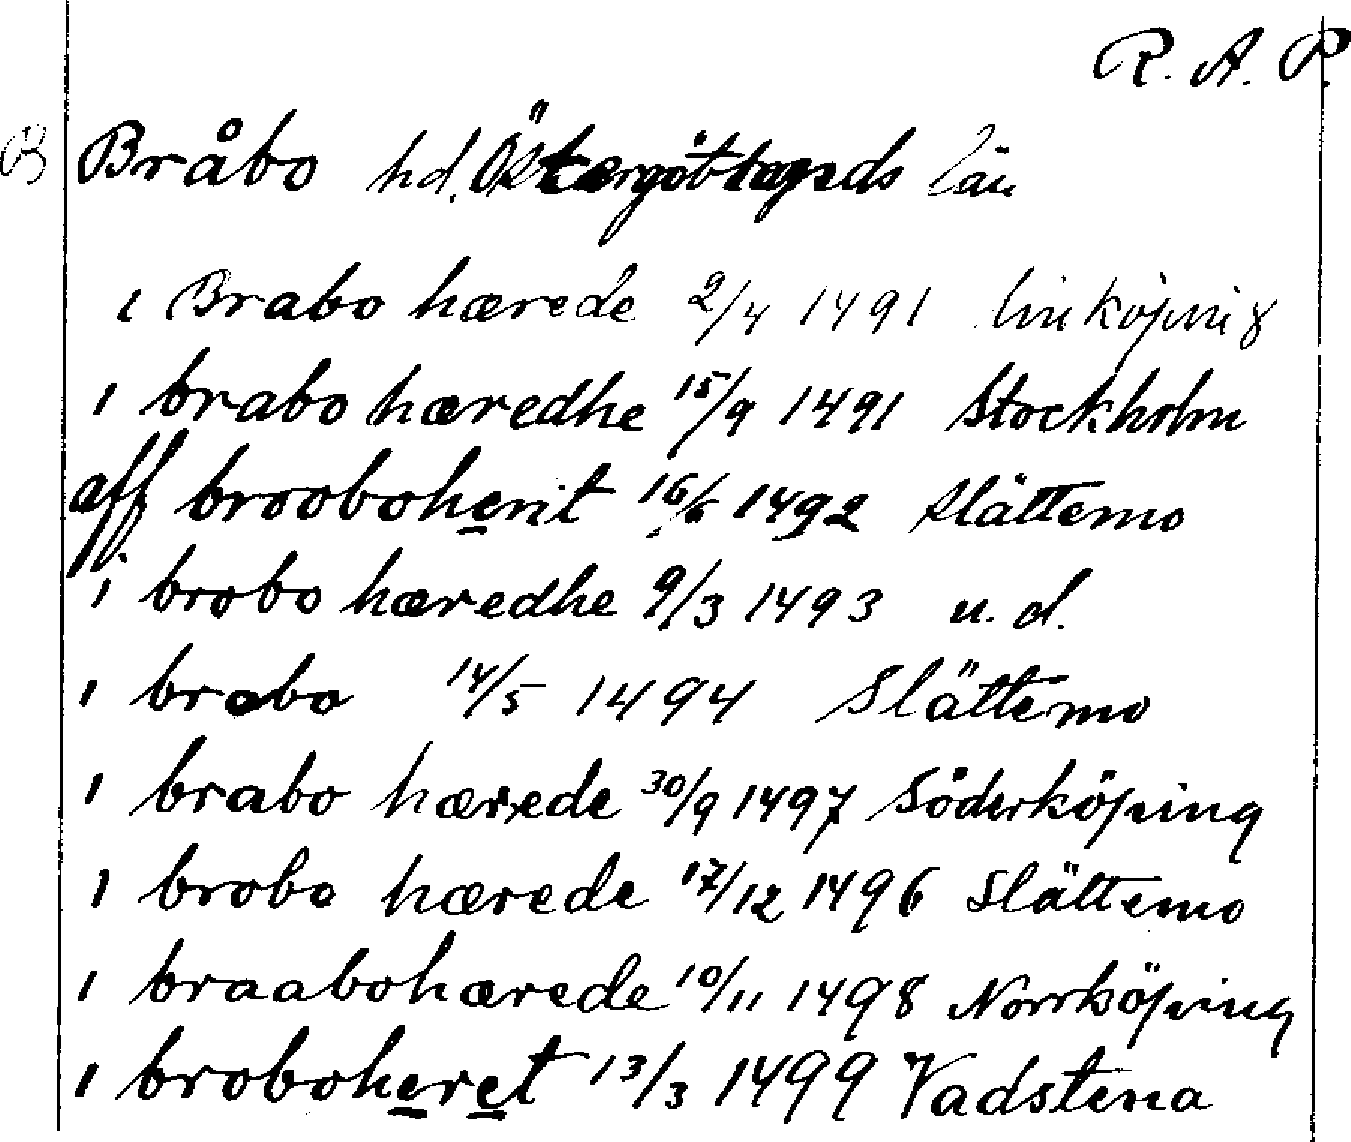 R. A. P.
B Bråbo hd. Östergötlands län
i Brabo hærede 2/4 1491 Linköping
i brabo hæredhe 15/9 1491 Stockholm
aff brooboherit 16/6 1492 Slättemo
i brobo hæredhe 9/3 1493 u. d.
i brabo 14/5 1494 Slättemo
i brabo hærede 30/9 1497 Söderköping
i brobo hærede 17/12 1496 Slättemo
i braabohærede 10/11 1498 Norrköping
i broboheret 13/3 1499 Vadstena